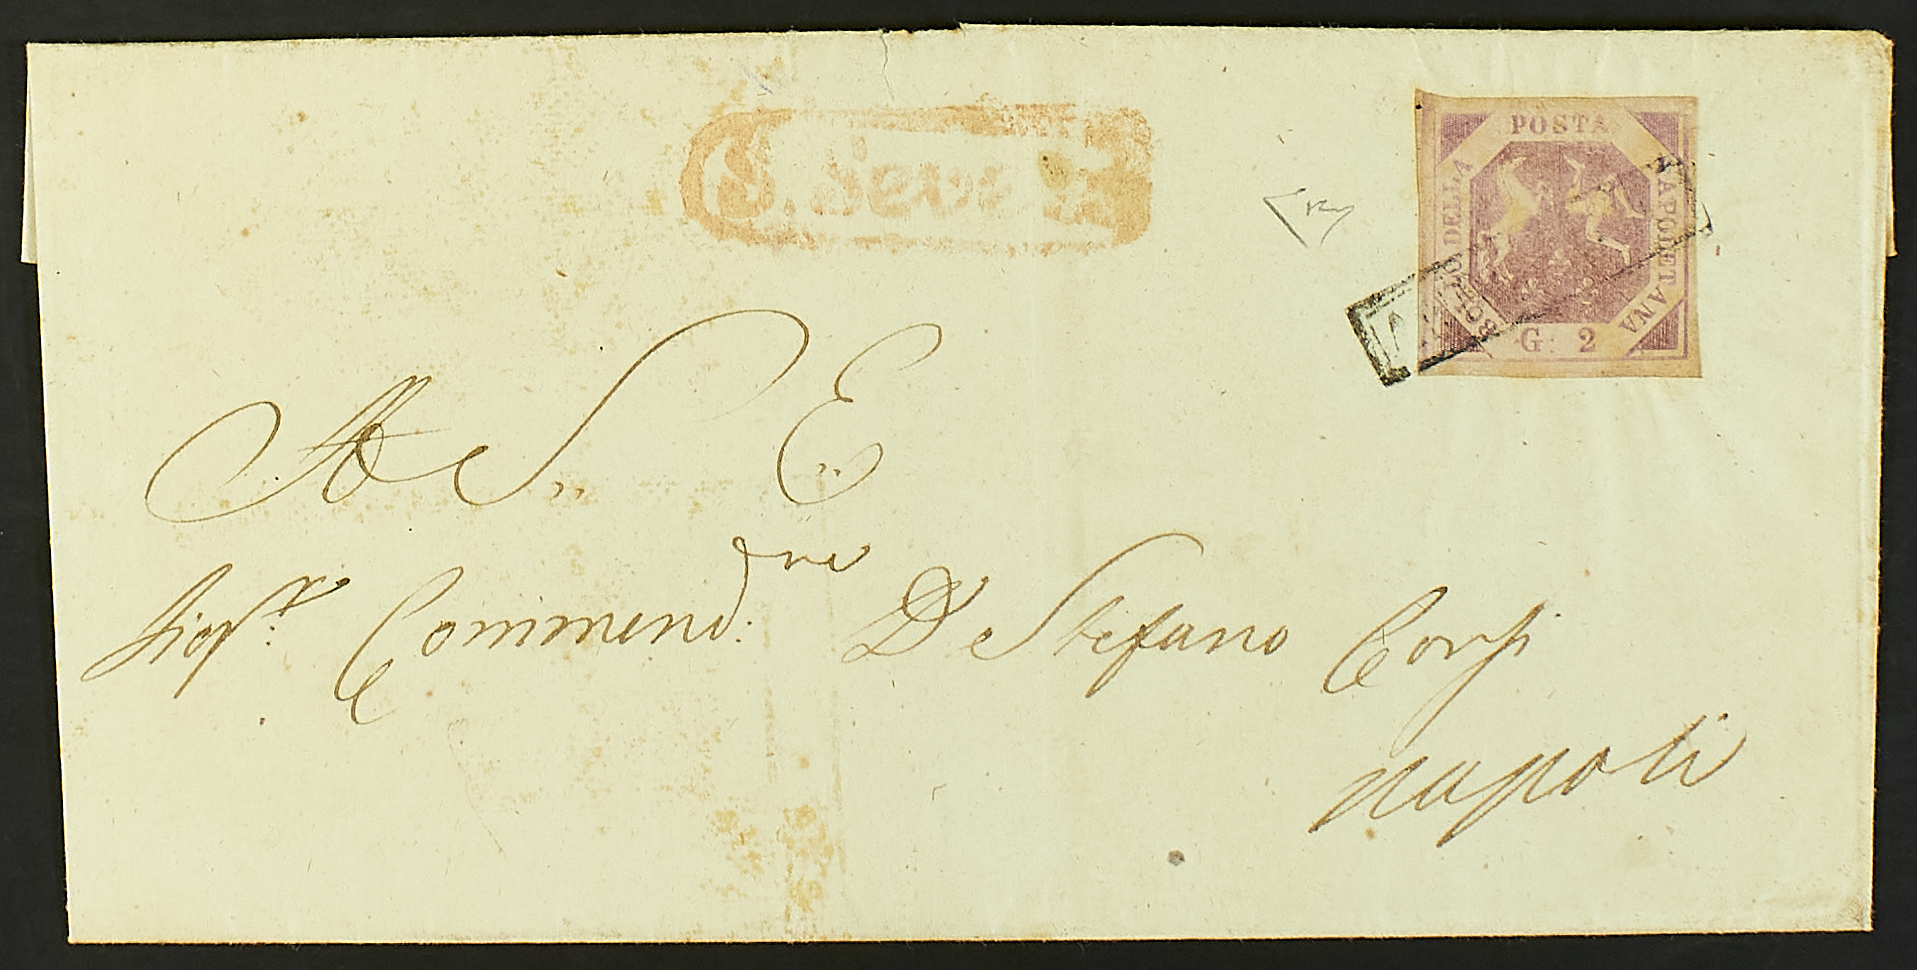 S. Severo
POSTA
BOLLO DELLA
NAPOLETANA
G. 2
A S.. E..
Sig.r Commend:dre De Stefano Corsi
Napoli